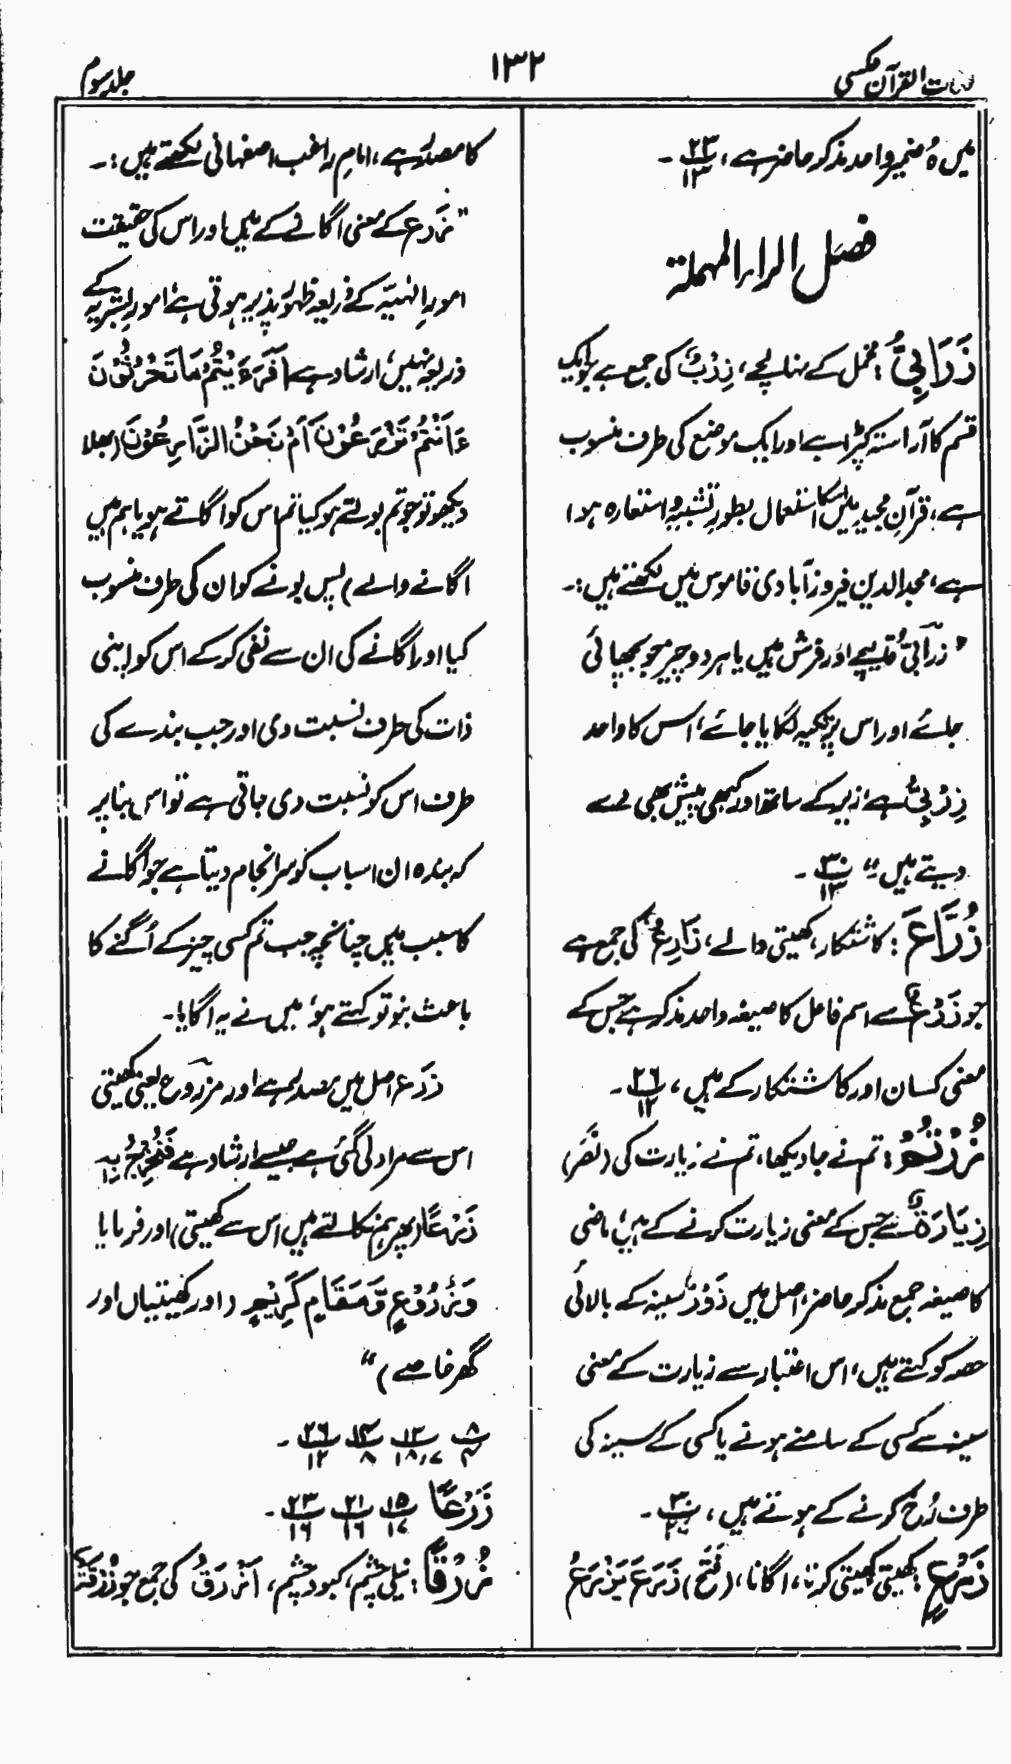 لغات القرآن عکسی
۱۳۲
جلد سوم
میں ہُ ضمیر واحد مذکر حاضر ہے، ۲۳/۱۳ ۔
فصل الراء المہملۃ
زَرَابِیُّ : مخمل کے نہالچے، زِرْبِیٌّ کی جمع ہے جو ایک
قسم کا آراستہ کپڑا ہے اور ایک موضع کی طرف منسوب
ہے، قرآنِ مجید میں اسکا استعمال بطورِ تشبیہ و استعارہ ہوا
ہے، مجد الدین فیروز آبادی قاموس میں لکھتے ہیں :۔
" زرابیُّ قالیچے اور فرش ہیں یا ہر وہ چیز جو بچھائی
جائے اور اس پر تکیہ لگایا جائے، اس کا واحد
زِرْبِیٌّ ہے زیر کے ساتھ اور کبھی پیش بھی دے
دیتے ہیں " ۳۰/۱۳ ۔
زُرَّاعَ : کاشتکار، کھیتی والے، زَارِعٌ کی جمع ہے
جو زَرْعٌ سے اسم فاعل کا صیغہ واحد مذکر ہے جس کے
معنی کسان اور کاشتکار کے ہیں ، ۲۶/۱۲ ۔
زُرْتُمُ : تم نے جا دیکھا، تم نے زیارت کی (نَصَرَ)
زِیَارَۃٌ سے جس کے معنی زیارت کرنے کے ہیں، ماضی
کا صیغہ جمع مذکر حاضر، اصل میں زَوْرٌ سینہ کے بالائی
حصہ کو کہتے ہیں، اس اعتبار سے زیارت کے معنی
سینہ سے کسی کے سامنے ہونے یا کسی کے سینہ کی
طرف رُخ کرنے کے ہوتے ہیں ، ۳۰/۲۷ ۔
زَرْعٍ : کھیتی کھیتی کرنا، اگانا، (فَتَحَ) زَرَعَ یَزْرَعُ
کا مصدر ہے، امامِ راغب اصفہانی لکھتے ہیں :۔
" زَرع کے معنی اگانے کے ہیں اور اس کی حقیقت
امورِ الٰہیہ کے ذریعہ ظہور پذیر ہوتی ہے، امورِ بشریہ کے
ذریعہ نہیں، ارشاد ہے اَفَرَءَیْتُمْ مَا تَحْرُثُوْنَ
ءَاَنْتُمْ تَزْرَعُوْنَہٗ اَمْ نَحْنُ الزَّارِعُوْنَ (بھلا
دیکھو تو جو تم بوتے ہو کیا تم اس کو اگاتے ہو یا ہم ہیں
اگانے والے) پس بونے کو ان کی طرف منسوب
کیا اور اگانے کی ان سے نفی کر کے اس کو اپنی
ذات کی طرف نسبت دی اور جب بندے کی
طرف اس کو نسبت دی جاتی ہے تو اس بنا پر
کہ بندہ ان اسباب کو سرانجام دیتا ہے جو اگانے
کا سبب ہیں چنانچہ جب تم کسی چیز کے اُگنے کا
باعث بنو تو کہتے ہو، میں نے یہ اگایا۔
زَرَع اصل میں مصدر ہے اور مزروع یعنی کھیتی
اس سے مراد لی گئی ہے جیسے ارشاد ہے فَنُخْرِجُ بِہٖ
زَرْعًا (پھر ہم نکالتے ہیں اس سے کھیتی) اور فرمایا
وَزُرُوْعٍ وَّمَقَامٍ کَرِیْمٍ (اور کھیتیاں اور
گھر خاصے) "
۸/۴ ۱۳/۷،۱۸ ۱۴/۸ ۲۶/۱۲ ۔
زَرْعًا ۱۵/۱۷ ۲۱/۱۶ ۲۳/۱۶ ۔
زُرْقًا : نیلی چشم، کبود چشم، اَزْرَقُ کی جمع جو زُرْقَۃٌ